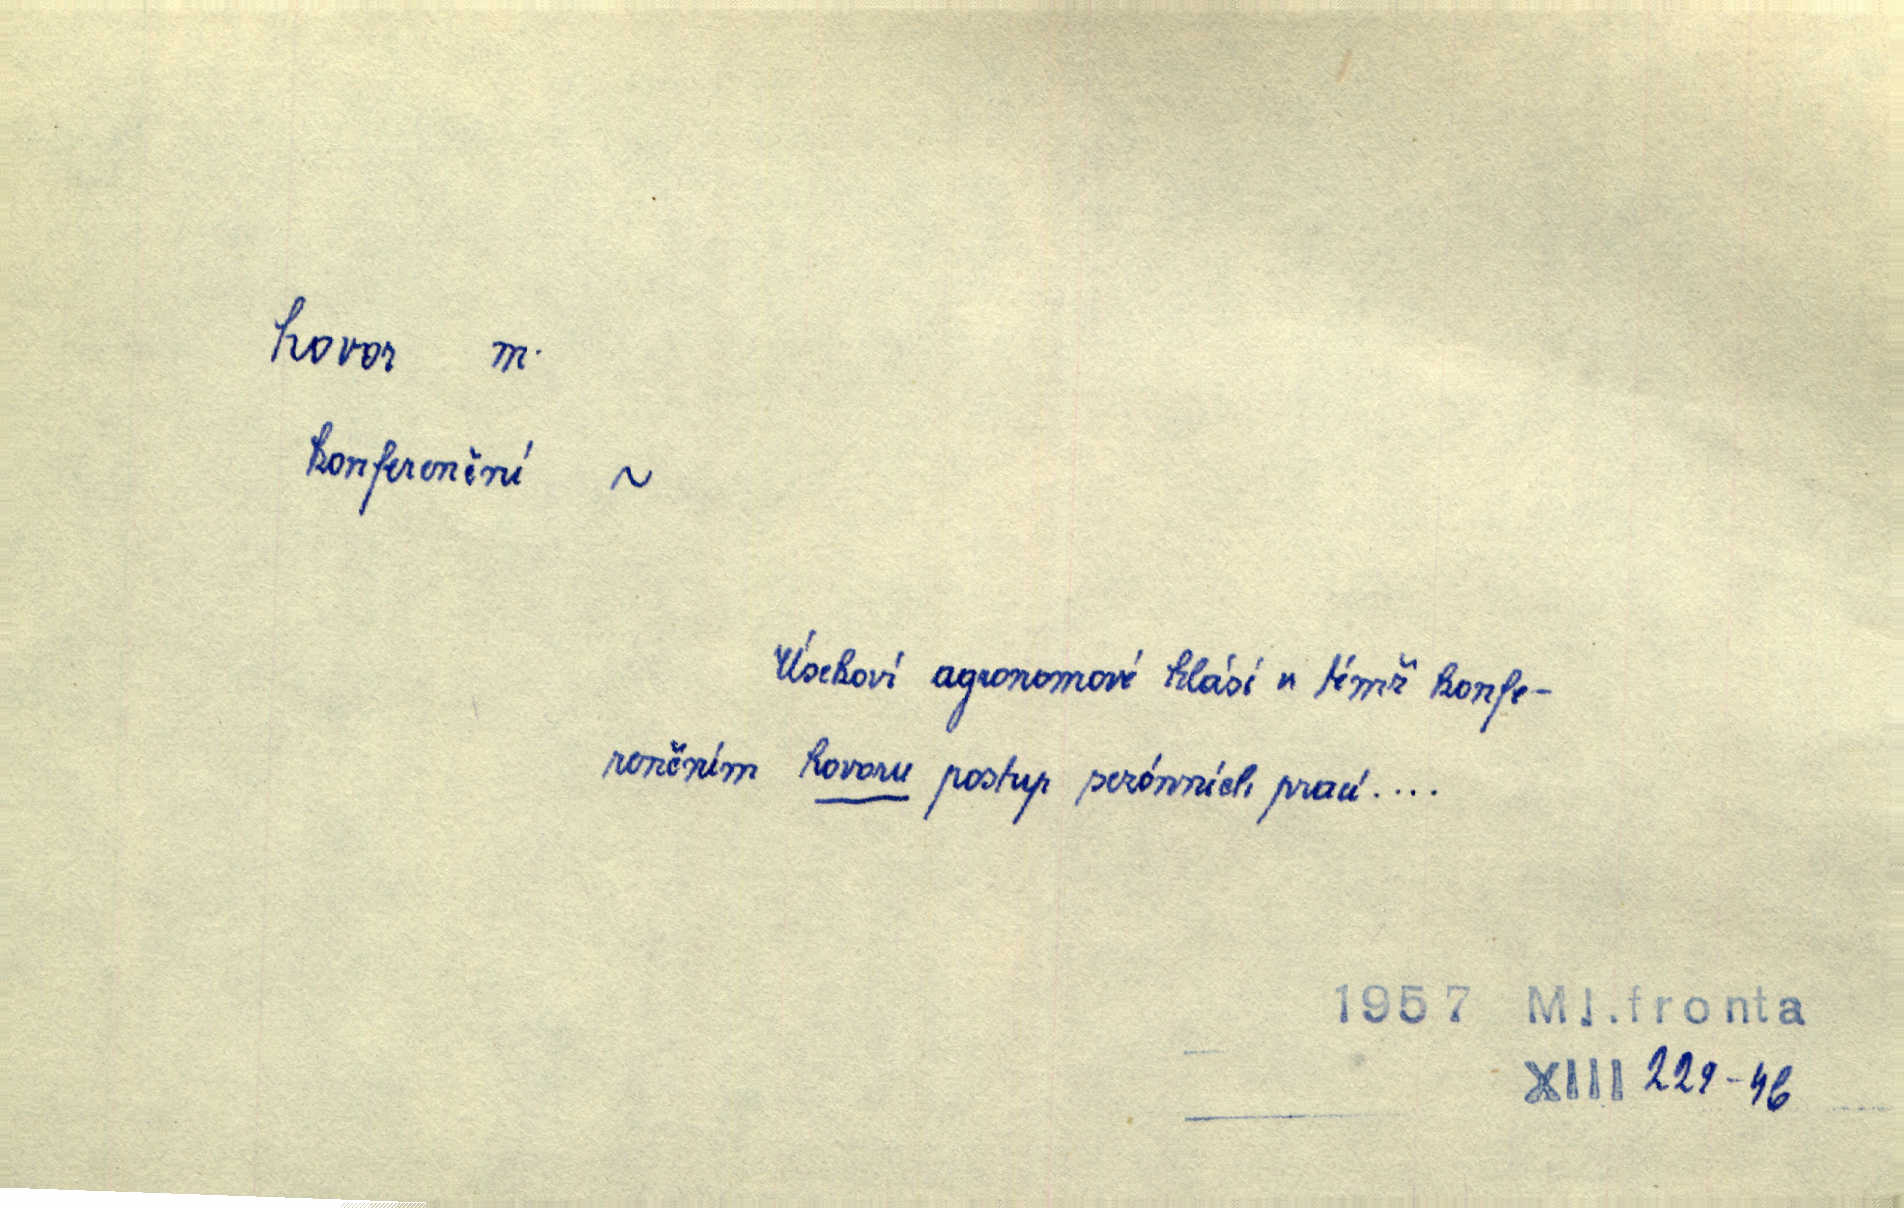 hovor m.
konferenční ~
Úsekoví agronomové hlásí v témž konfe-
renčním hovoru postup sezónních prací....
1957 Ml.fronta
XIII 229-46